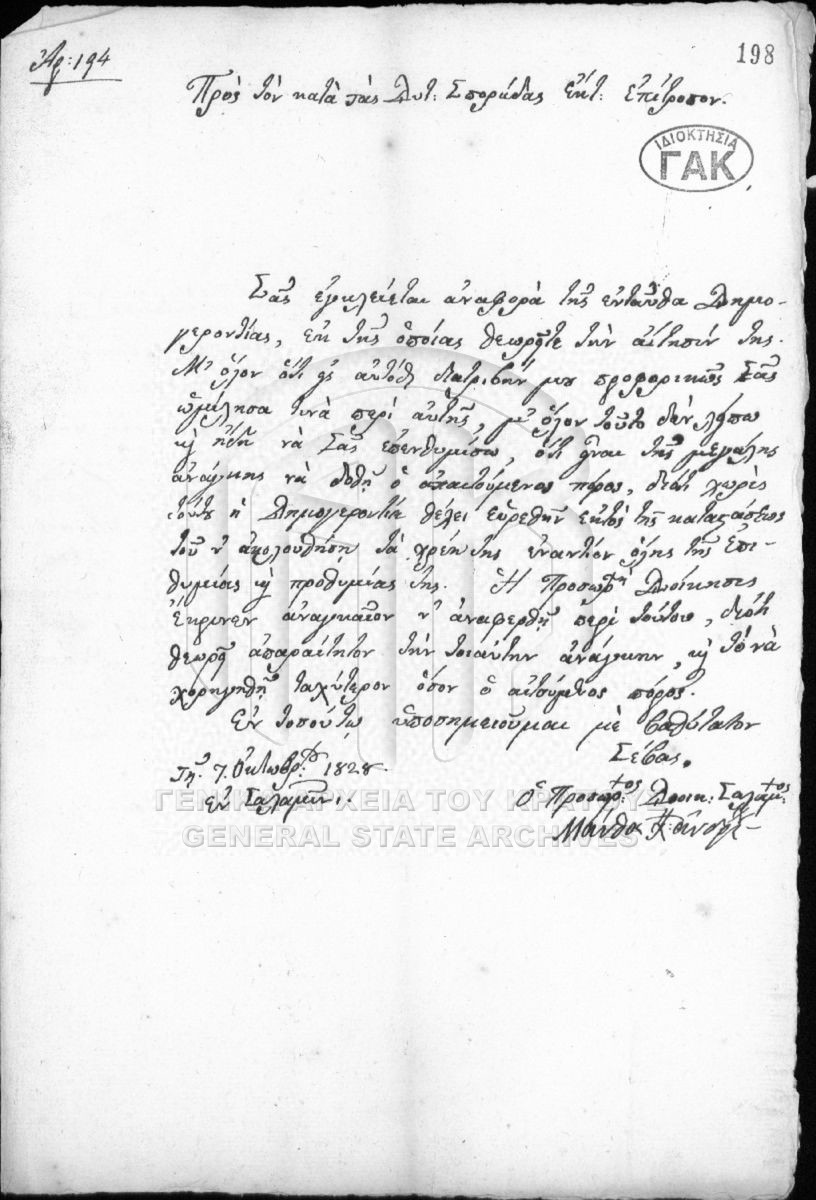 Ἀρ: 194
198
Πρὸς τὸν κατὰ τὰς Δυτ: Σποράδας Ἐκτ: Ἐπίτροπον.
ΙΔΙΟΚΤΗΣΙΑ
ΓΑΚ
Σᾶς ἐγκλείεται ἀναφορὰ τῆς ἐνταῦθα Δημο-
γεροντίας, ἐκ τῆς ὁποίας θεωρεῖτε τὴν αἴτησίν της.
Μ' ὅλον ὅτι εἰς αὐτόθι διατριβήν μου προφορικῶς Σᾶς
ὡμίλησα τινὰ περὶ αὐτῆς, μ' ὅλον τοῦτο δὲν λείπω
καὶ ἤδη νὰ Σᾶς ἐπενθυμίσω, ὅτι εἶναι τῆς μεγάλης
ἀνάγκης νὰ δοθῇ ὁ ἀπαιτούμενος πόρος, διότι χωρὶς
τούτου ἡ Δημογεροντία θέλει εὑρεθῆν ἐκτὸς τῆς καταστάσεως
τοῦ ν' ἀκολουθήση τὰ χρέη της ἐναντίον ὅλης τῆς ἐπι-
θυμίας καὶ προθυμίας της. Ἡ Προσωρ: Διοίκησις
ἔκρινεν ἀναγκαῖον ν' ἀναφερθῇ περὶ τούτου, διότι
θεωρεῖ ἀπαραίτητον τὴν τοιαύτην ἀνάγκην, καὶ τὸ νὰ
χορηγηθῇ ταχύτερον ὅσον ὁ αἰτούμενος πόρος.
Ἐν τοσούτῳ ὑποσημειοῦμαι μὲ βαθύτατον
Σέβας.
τῇ 7. Ὀκτωβρ: 1828.
ἐν Σαλαμῖνι.
Ὁ Προσωρ:τος Διοικ: Σαλαμ:τος
ΓΕΝΙΚΑ ΑΡΧΕΙΑ ΤΟΥ ΚΡΑΤΟΥΣ
GENERAL STATE ARCHIVES